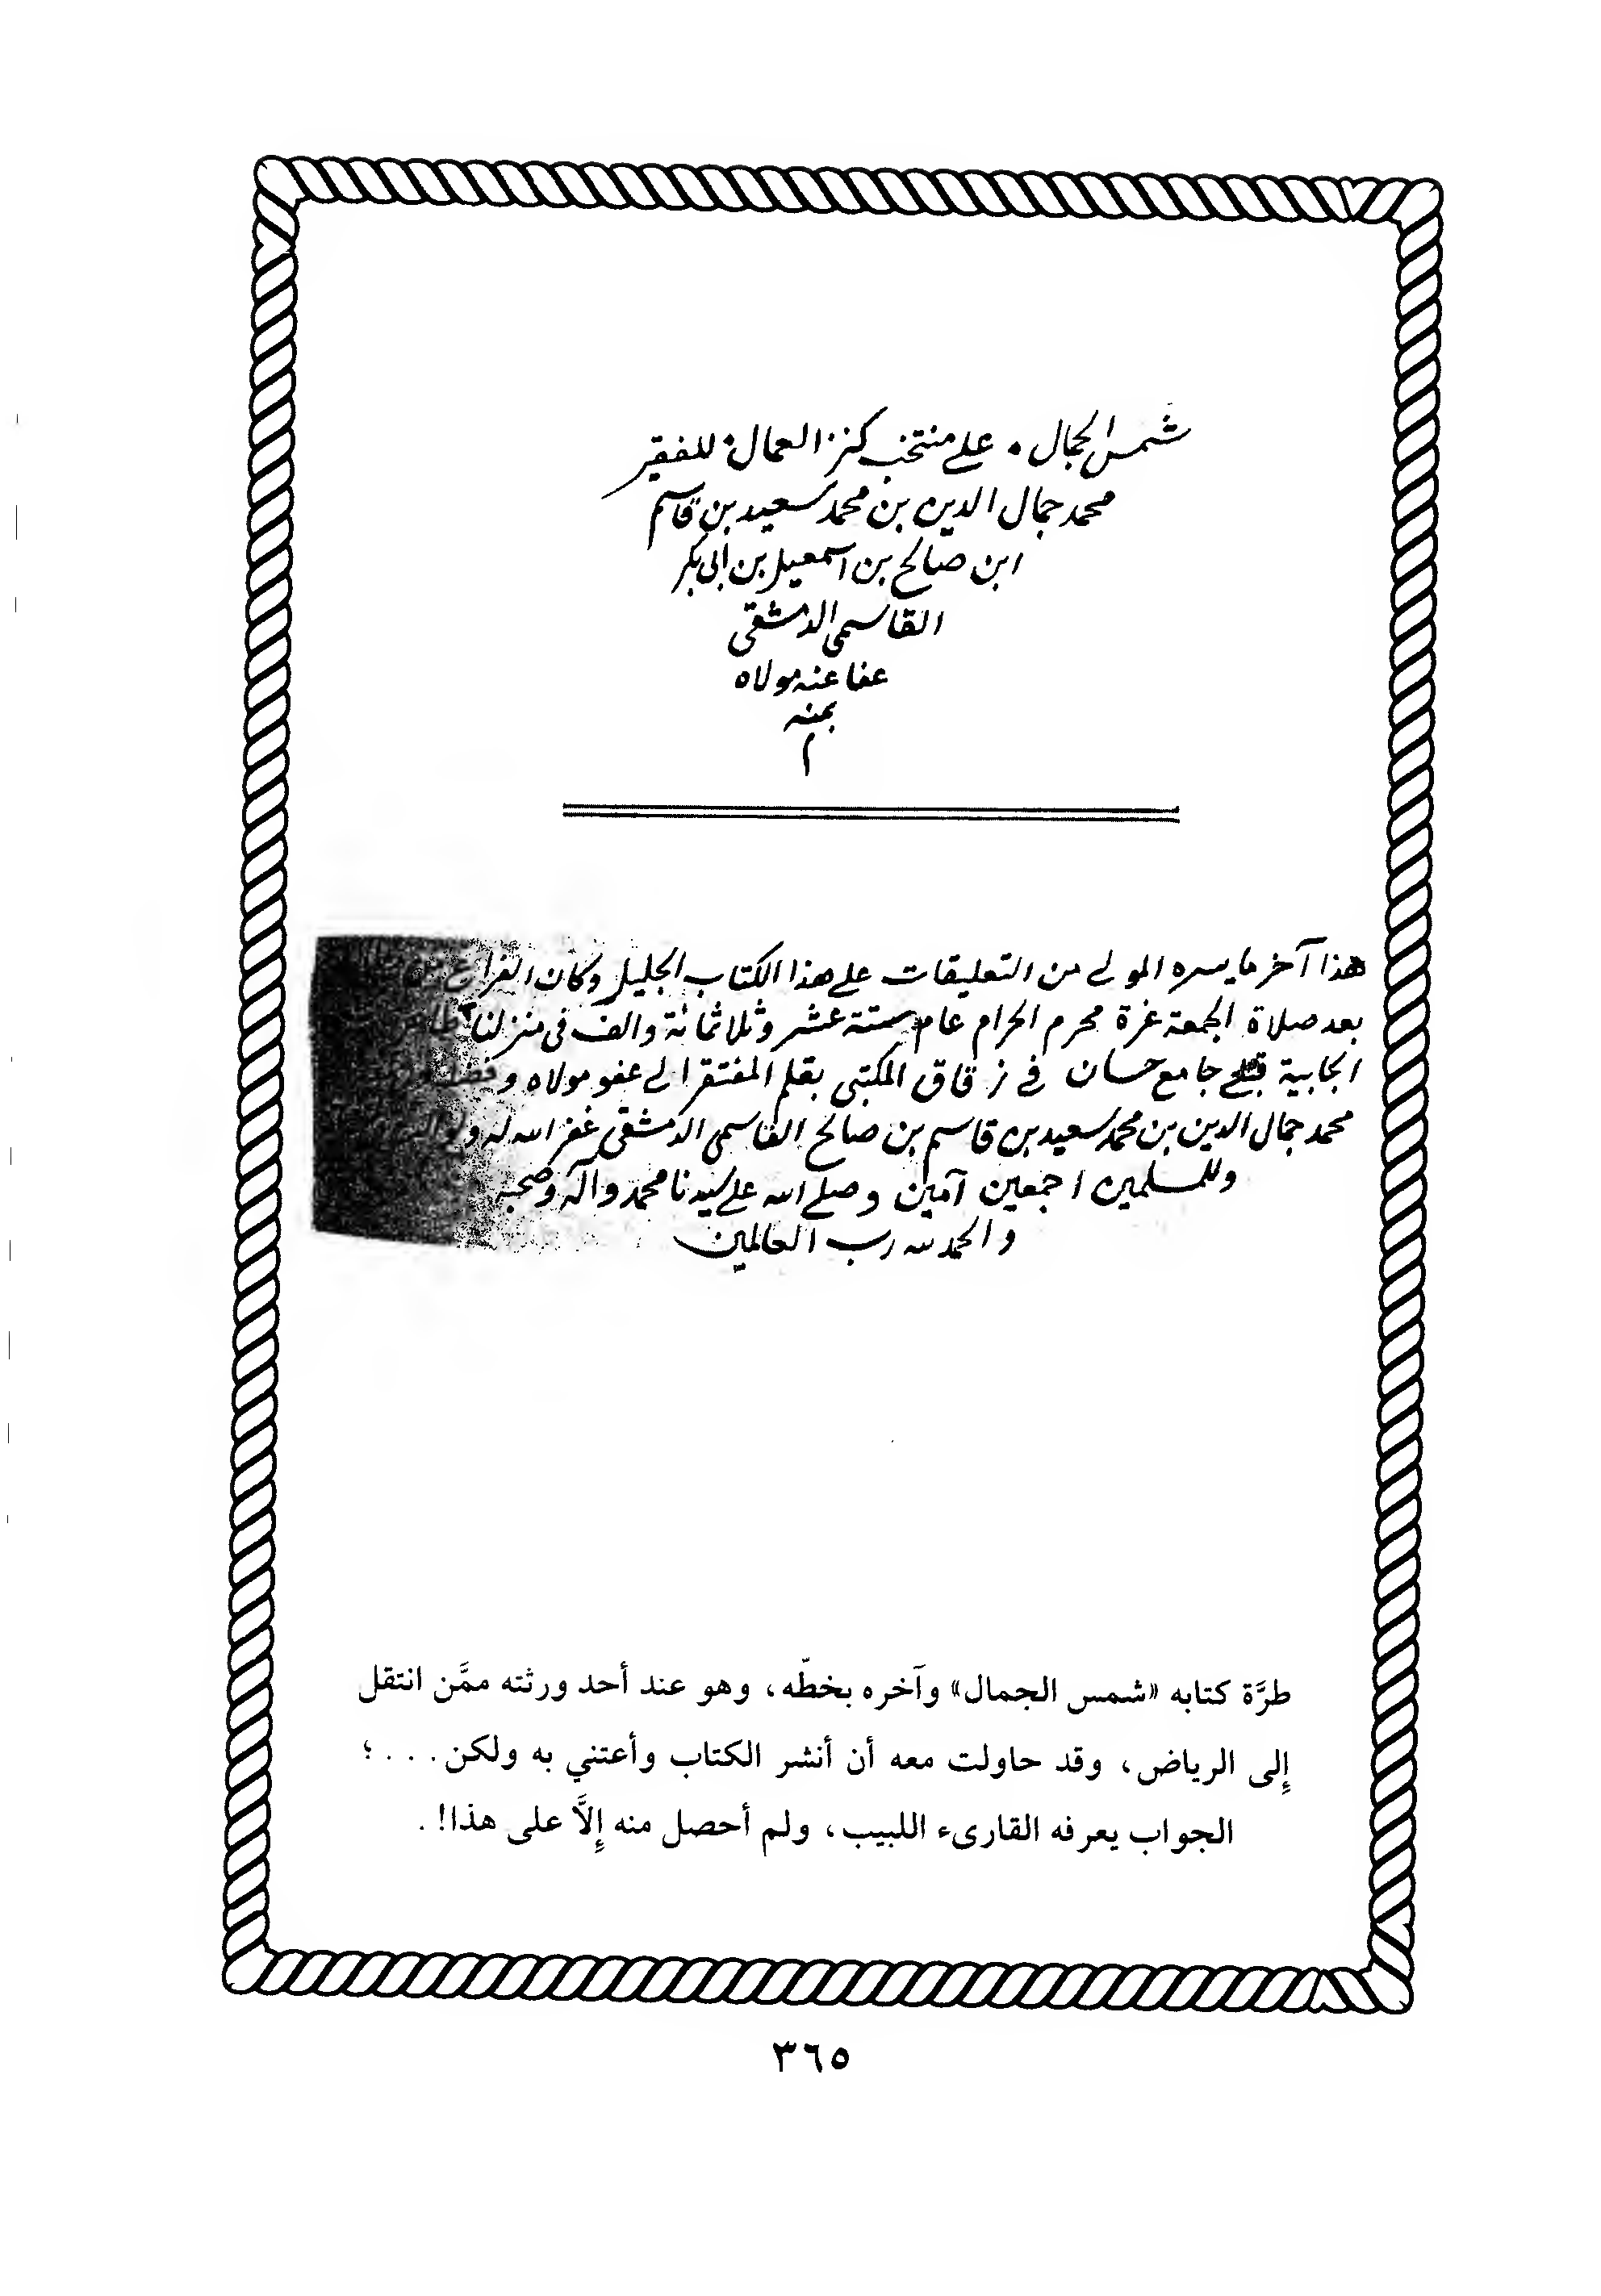 شمس الجمال • على منتخب كنز العمال • للفقير
محمد جمال الدين بن محمد سعيد بن قاسم
ابن صالح بن اسمعيل بن ابي بكر
القاسمي الدمشقي
عفا عنه مولاه
بمنه
م
هذا آخر ما يسره المولى من التعليقات على هذا الكتاب الجليل وكان الفراغ
بعد صلاة الجمعة غرة محرم الحرام عام ستة عشر وثلاثمائة والف في منزلنا
الجابية قبلي جامع حسان في زقاق المكتبي بقلم المفتقر الى عفو مولاه
محمد جمال الدين بن محمد سعيد بن قاسم بن صالح القاسمي الدمشقي غفر الله له
وللمسلمين اجمعين آمين وصلى الله على سيدنا محمد وآله وصحبه
والحمد لله رب العالمين
طرَّة كتابه «شمس الجمال» وآخره بخطّه، وهو عند أحد ورثته ممَّن انتقل
إلى الرياض، وقد حاولت معه أن أنشر الكتاب وأعتني به ولكن. . . ؛
الجواب يعرفه القارىء اللبيب، ولم أحصل منه إلَّا على هذا! .
٣٦٥